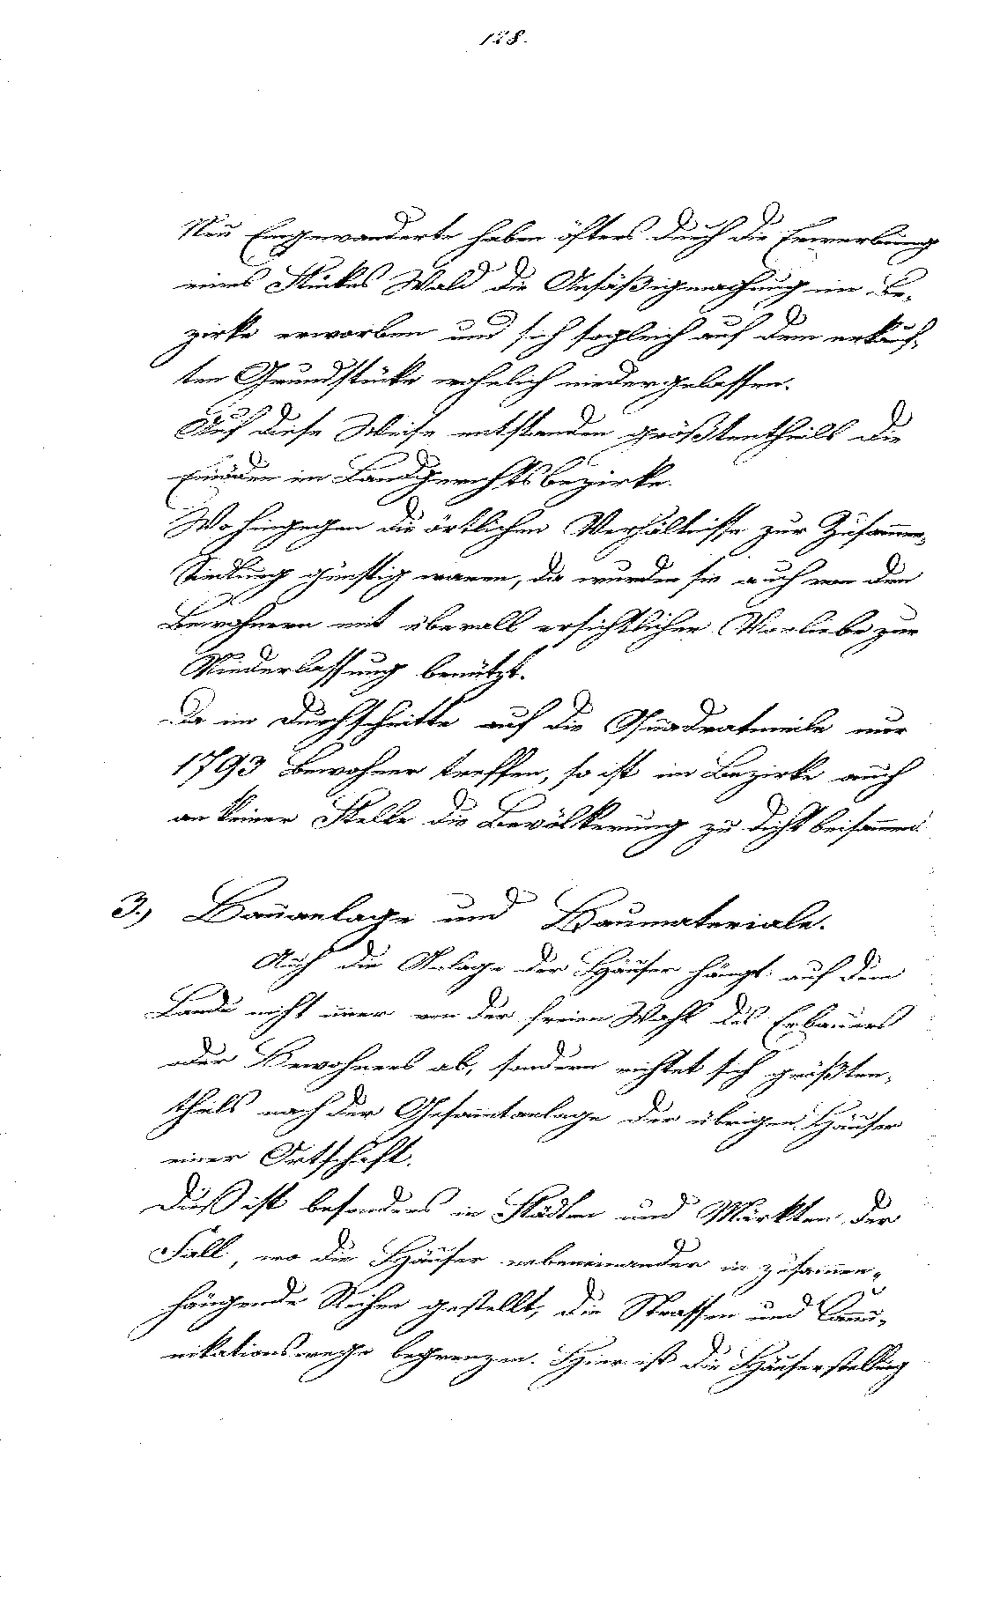 128.
Neu Eingewanderte haben öfters durch die Erwerbung
eines Stückes Wald die Ansäßigmachung im Be-
zirke erworben und sich sogleich auf dem erkauf-
ten Grundstücke wohnlich niedergelassen.
Auf diese Weise entstanden größtentheils die
Einöden im Landgerichtsbezirke.
Wo hingegen die örtlichen Verhältnisse zur Zusammen-
siedlung günstig waren, da wurden sie auch von den
Bewohnern mit überall ersichtlicher Vorliebe zur
Niederlassung benützt.
Da im Durchschnitte auf die Quadratmeile nur
1793 Bewohner treffen, so ist im Bezirke auch
an keiner Stelle die Bevölkerung zu dicht beisammen.
3.) Bauanlage und Baumateriale.
Auch die Anlage der Häuser hängt auf dem
Lande nicht im̄er von der freien Wahl des Erbauers
oder Bewohners ab, sondern richtet sich größten-
theils nach der Gesam̄tanlage der übrigen Häuser
einer Ortschaft.
Dieß ist besonders in Städten und Märkten der
Fall, wo die Häuser nebeneinander in zusam̄en-
hängende Reihen gestellt, die Strassen und Com̄u-
nikationswege begrenzen. Hier ist die Häuserstellung